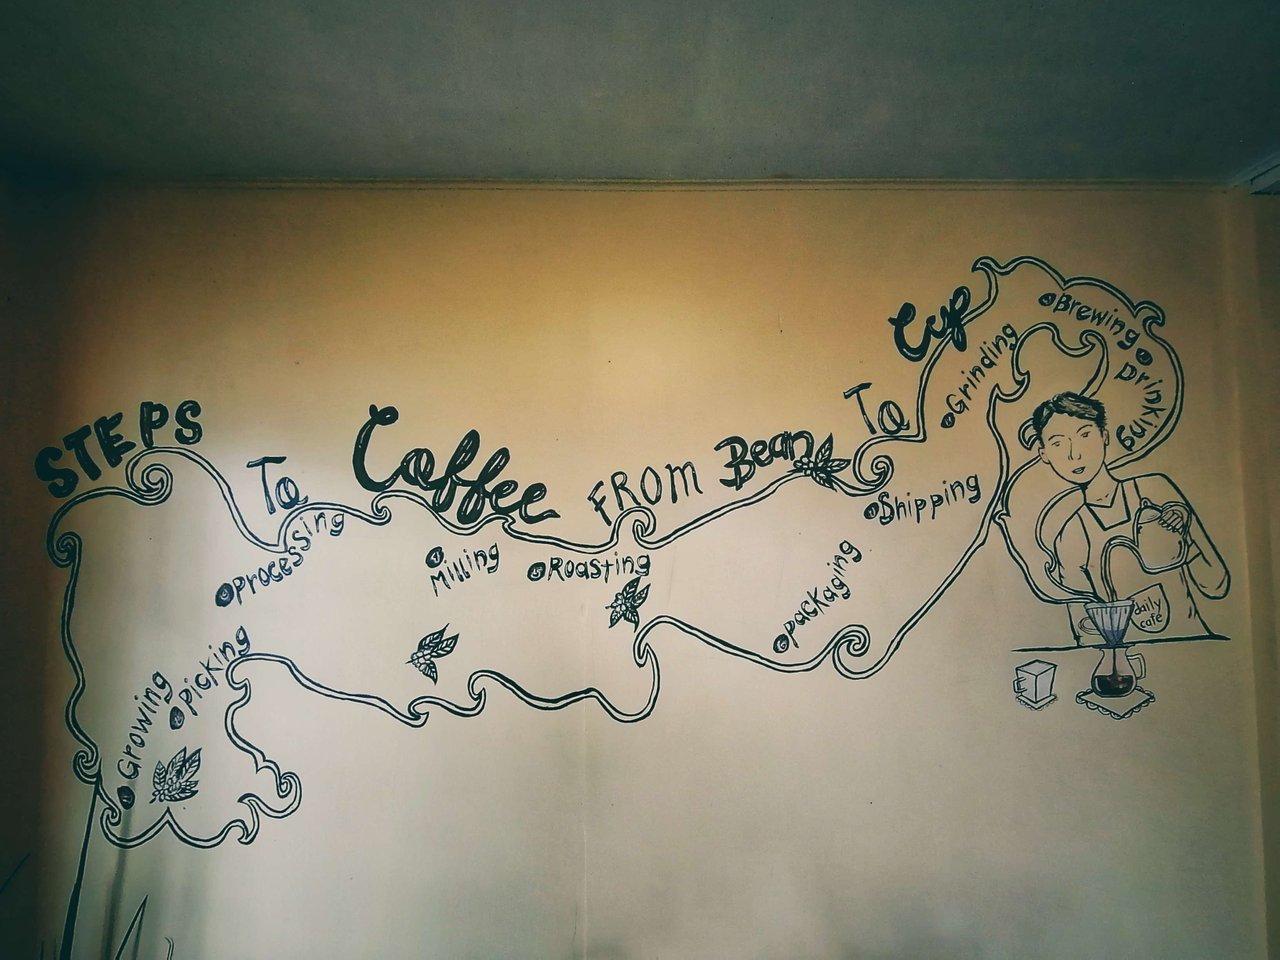 STEPS To Coffee FROM Bean To Cup
1 Growing
2 picking
3 processing
4 Milling
5 Roasting
6 packaging
7 Shipping
8 Grinding
9 Brewing
10 Drinking
daily
cafe